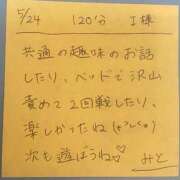 5/24 120分 I様
共通の趣味のお話
したり、ベッドで沢山
責めて2回戦したり、
楽しかったね(>ω<)
次も遊ぼうね♡
みと